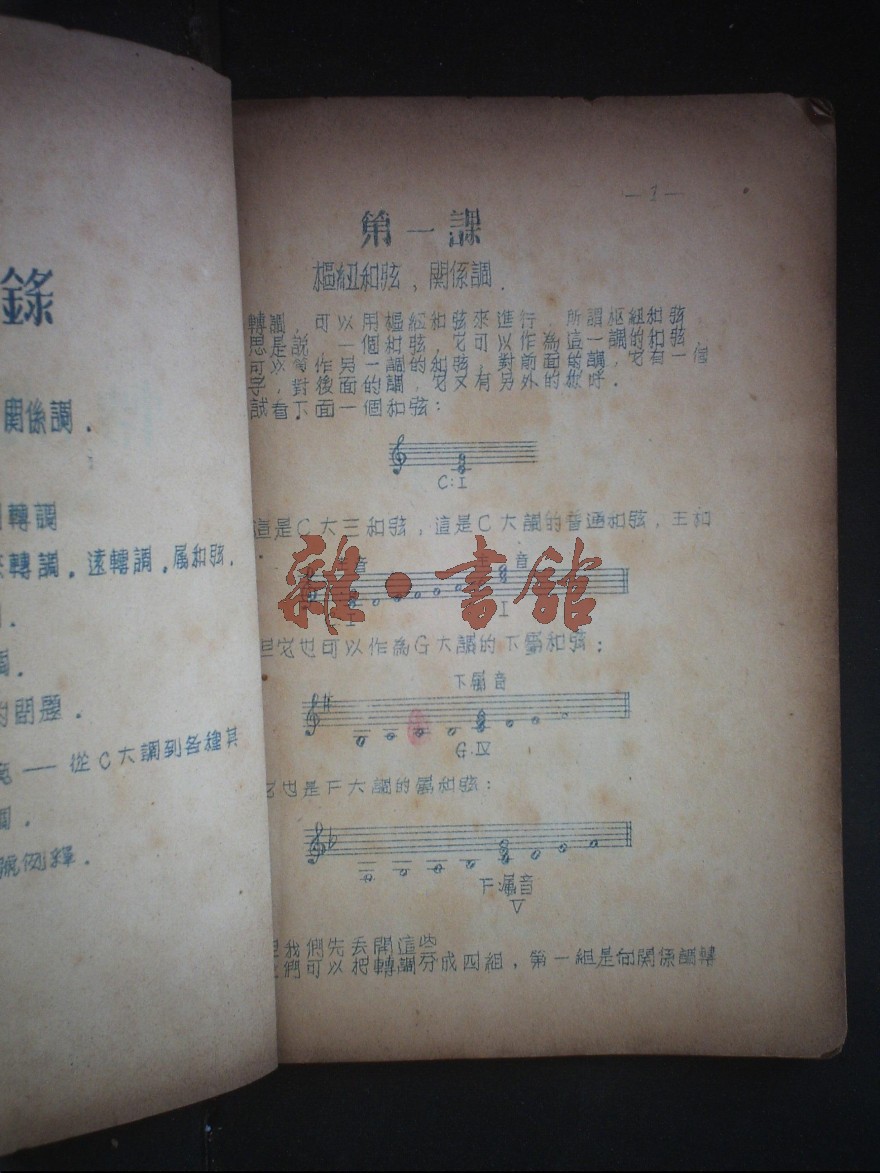 錄
關係調．
轉調
轉調．遠轉調．属和弦．
的問題．
從C大調到各種其
例釋．
—1—
第一課
樞紐和弦，關係調．
轉調，可以用樞紐和弦來進行，所謂樞紐和弦
思是說，一個和弦，它可以作為這一調的和弦，
可以當作另一調的和弦，對前面的調，它有一個
字，對後面的調，它又有另外的稱呼．
試看下面一個和弦：
C:I
這是C大三和弦，這是C大調的普通和弦，主和
音
音
I
I
雜·書館
但它也可以作為G大調的下屬和弦：
下屬音
G:IV
它也是F大調的屬和弦：
F:屬音
V
但我們先丟開這些
我們可以把轉調分成四組，第一組是向關係調轉